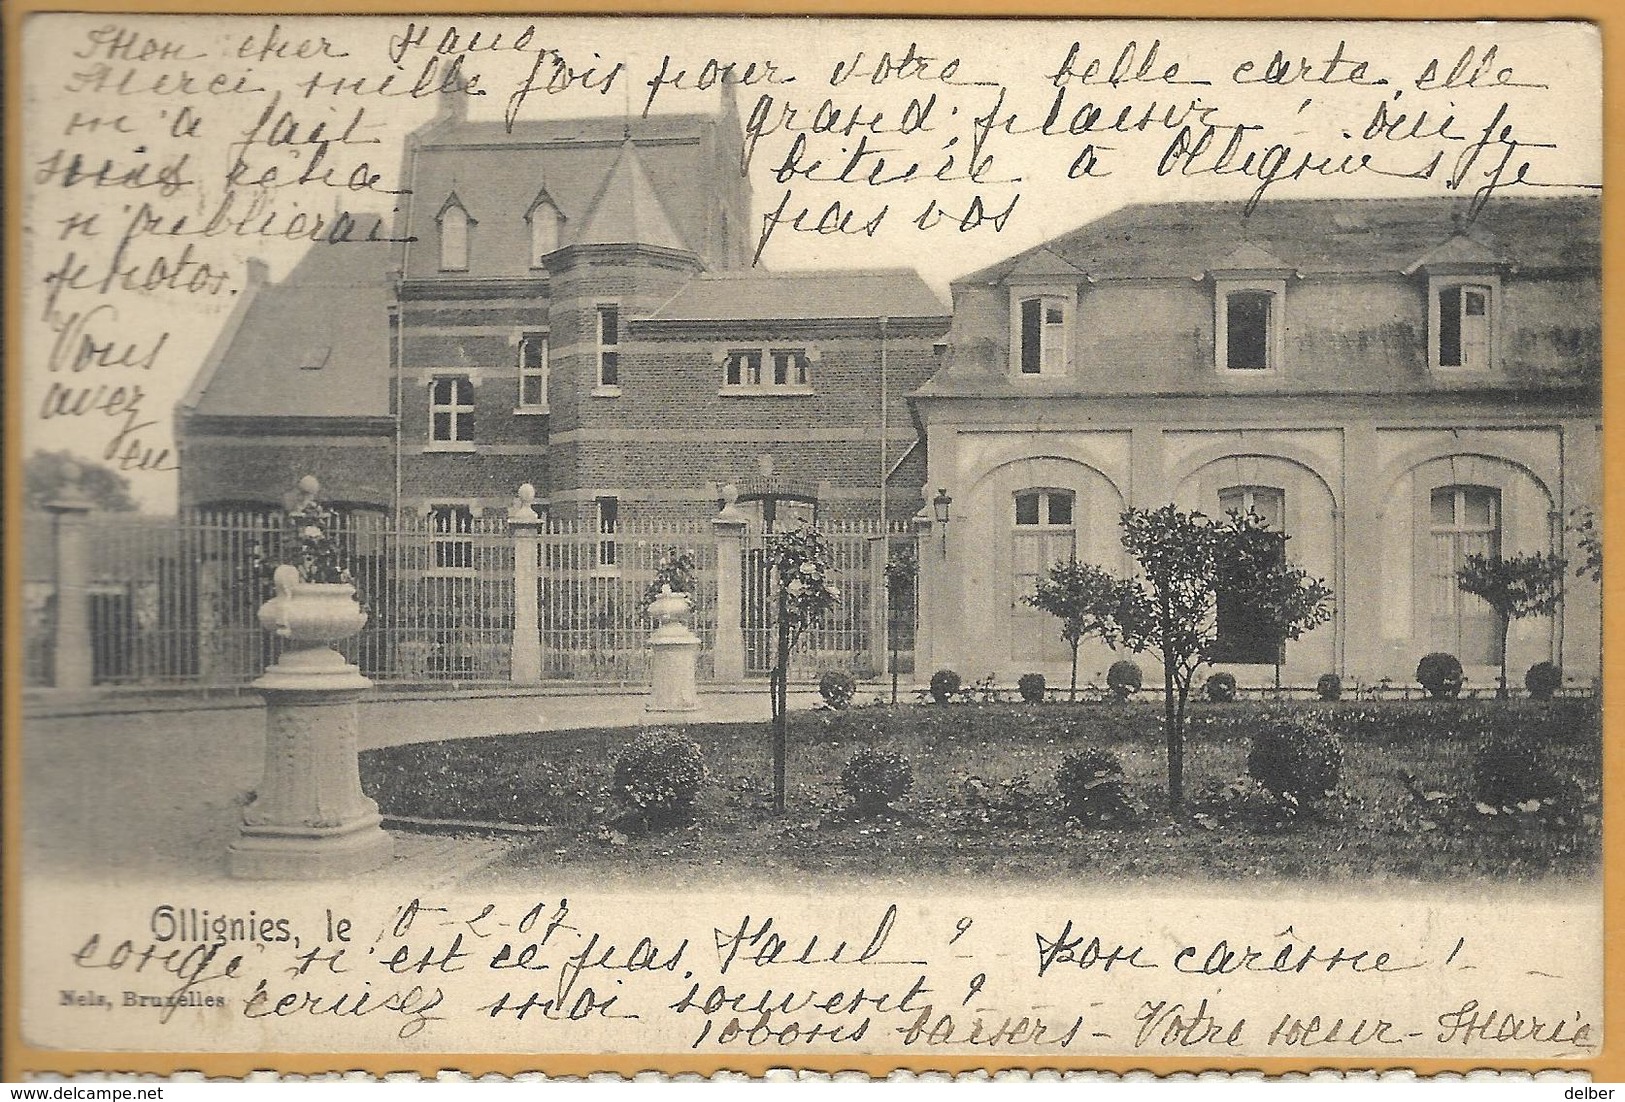 Mon cher Paul,
Merci mille fois pour votre belle carte, elle
m'a fait grand plaisir! Oui je
suis réha bituée à Ollignies. Je
n'oublierai pas vos
photos.
Vous
avez
eu
Ollignies, le 10-2-07.
congé, n'est ce pas, Paul? Bon carême!
Nels, Bruxelles
écrivez moi souvent?
10 bons baisers - Votre sœur - Marie
delber